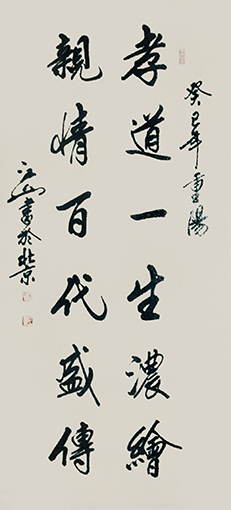 癸巳年重陽
孝道一生濃繪
親情百代盛傳
江山書於北京